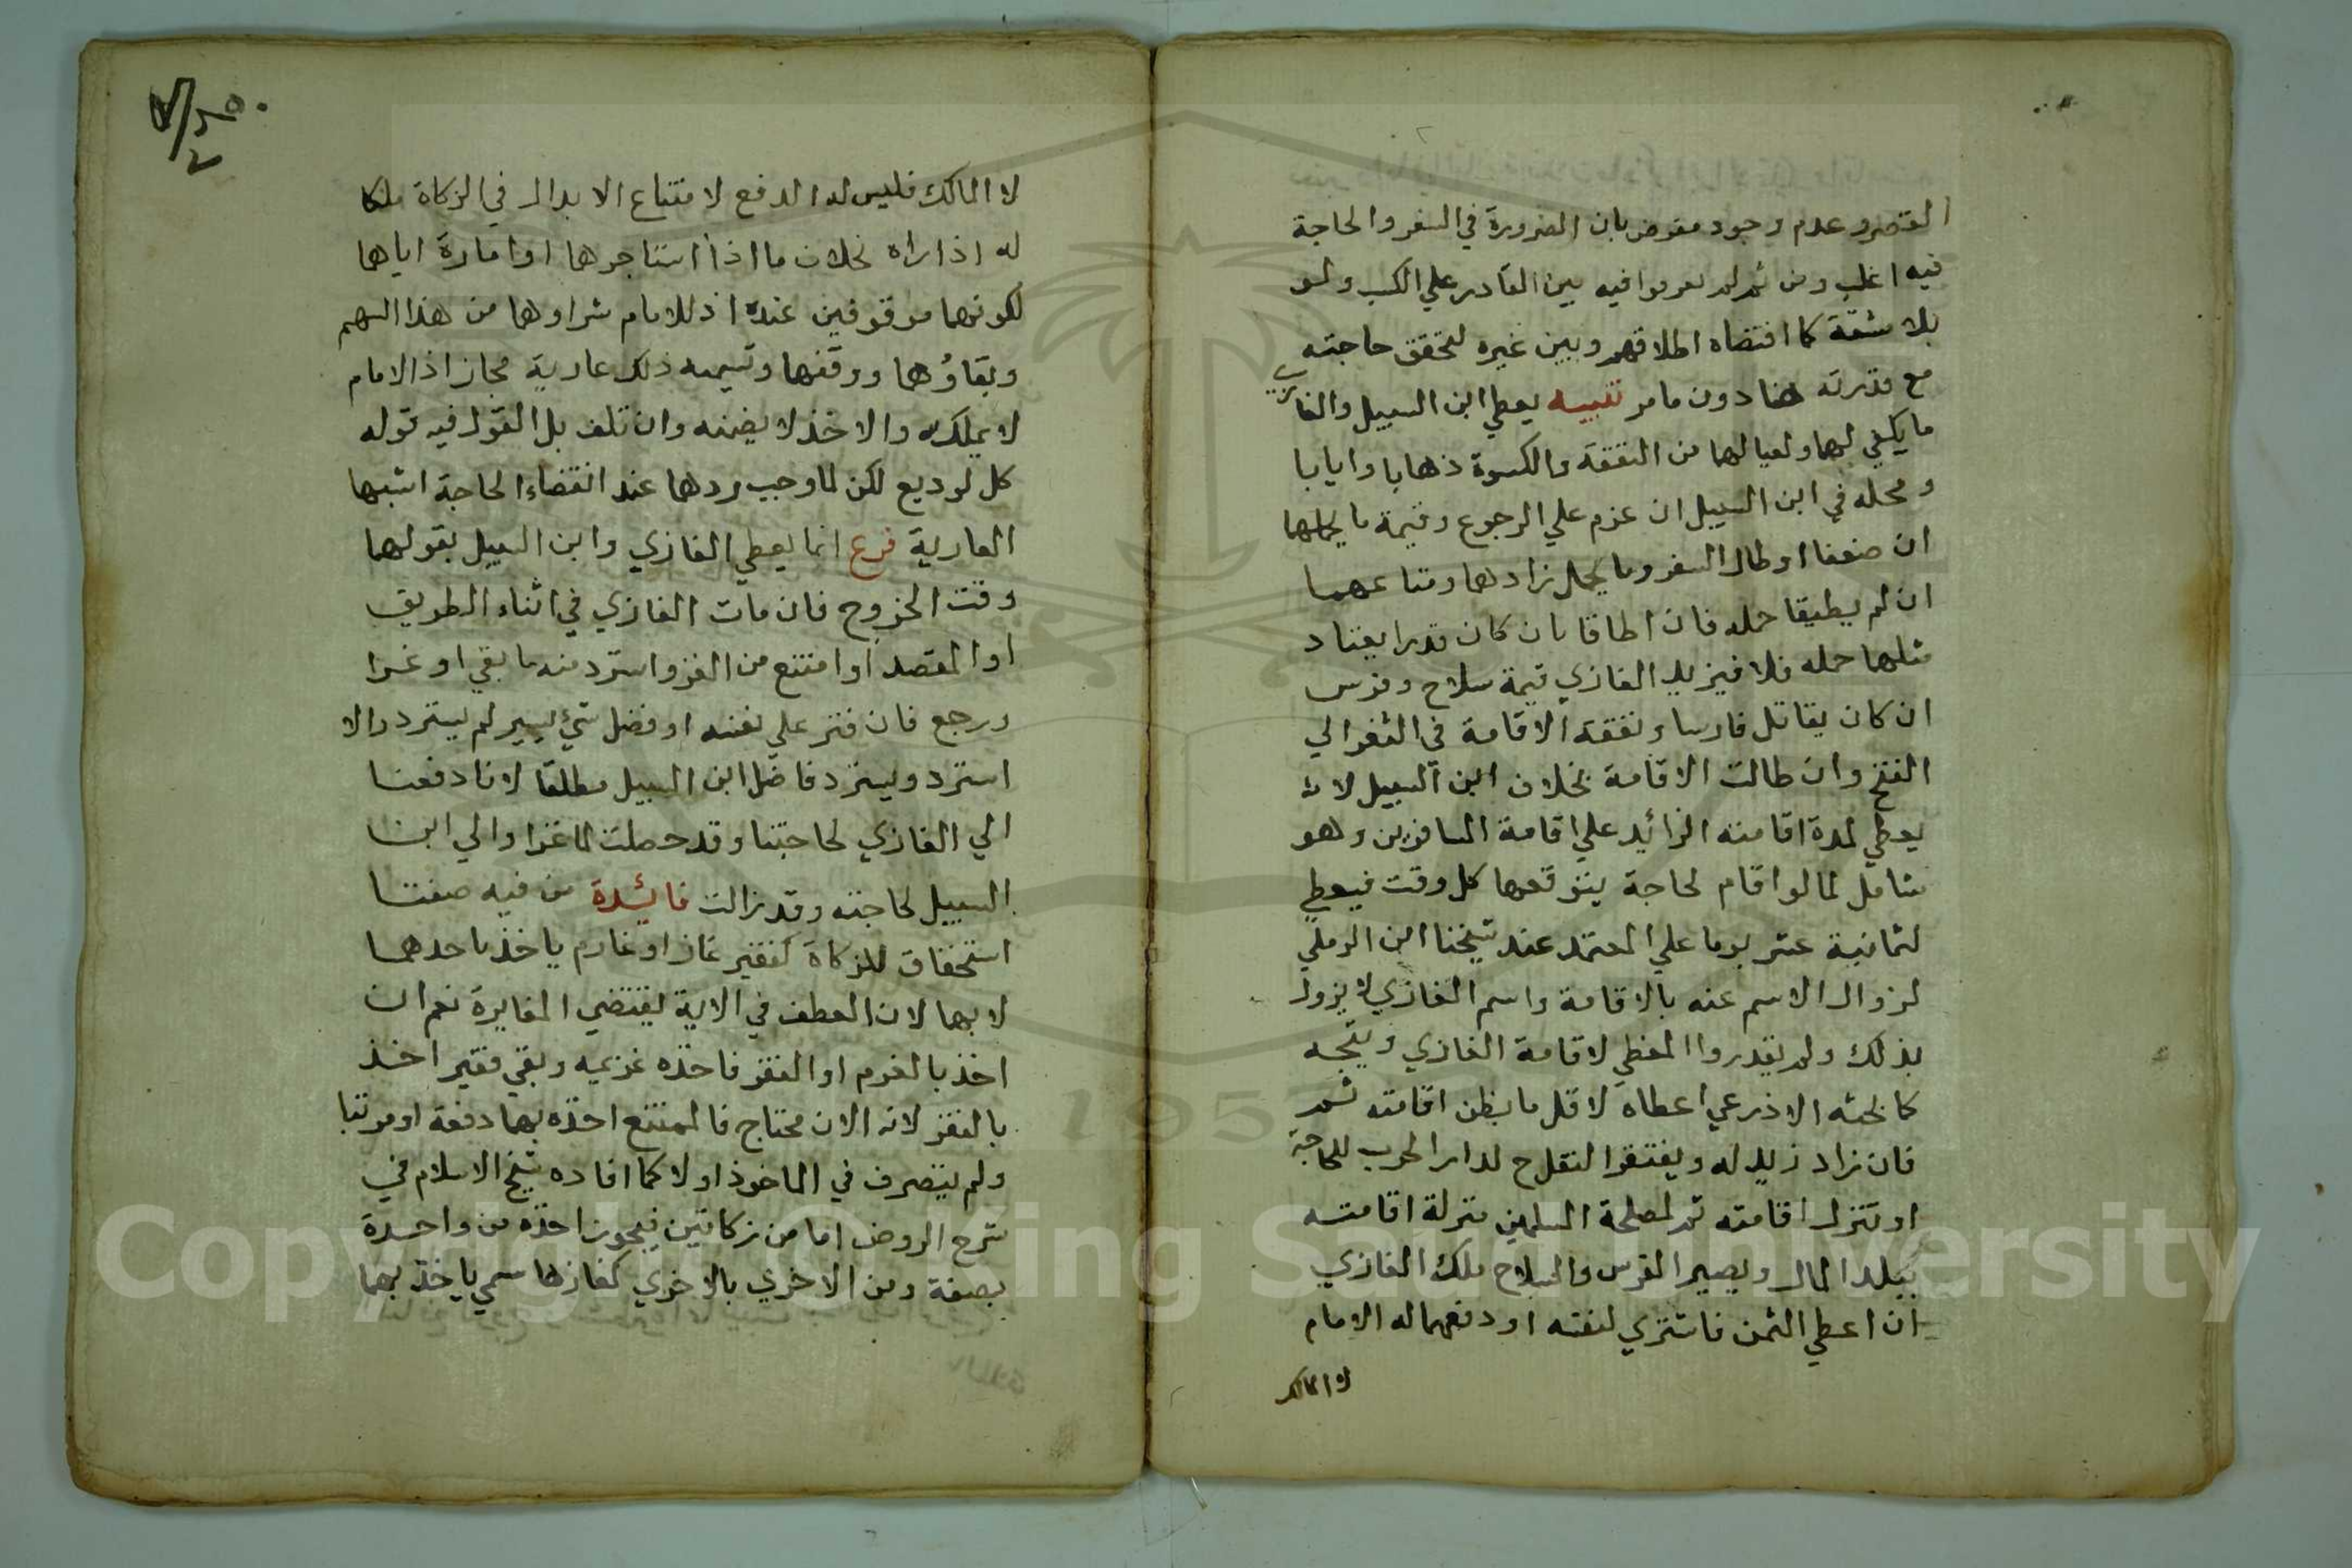 القصر و عدم وجود مقرض بان الضرورة في السفر والحاجة
فيه اغلب ومن ثم لم يفرقوا فيه بين القادر علي الكسب ولو
بلا مشقة كما اقتضاه اطلاقهم وبين غيره لتحقق حاجته
مع قدرته هنا دون ما مر تنبيه يعطي ابن السبيل والغازي
ما يكفي لهما ولعيالهما من النفقة والكسوة ذهابا وايابا
ومحله في ابن السبيل ان عزم علي الرجوع وقيمة ما يحملهما
ان ضعفا او طال السفر وما يحمل زادهما ومتاعهما
ان لم يطيقا حمله فان اطاقا بان كان قدرا يعتاد
مثلهما حمله فلا فيزيد الغازي قيمة سلاح وفرس
ان كان يقاتل فارسا ونفقة الاقامة في الثغر الي
الفتح وان طالت الاقامة بخلاف ابن السبيل لا
يعطي لمدة اقامته الزائد علي اقامة المسافرين وهو
شامل لما لو اقام لحاجة يتوقعها كل وقت فيعطي
لثمانية عشر يوما علي المعتمد عند شيخنا ابن الرملي
لزوال الاسم عنه بالاقامة واسم الغازي لا يزول
بذلك ولم يقدروا المعطي لاقامة الغازي ويتجه
كما بحثه الاذرعي اعطاه لاقل ما يظن اقامته ثم
فان زاد زيد له ويغتفر النقل ح لدار الحرب للحاجة
او تنزل اقامته ثم لمصلحة المسلمين منزلة اقامته
ببلد المال ويصير الفرس والسلاح ملك الغازي
ان اعطي الثمن فاشتري لنفسه او دفعهما له الامام
لا المالك
٢٥٠
٧
٢
لا المالك فليس له الدفع لامتناع الابدال في الزكاة ملكا
له اذا راه بخلاف ما اذا استاجرهما او اعاره اياهما
لكونهما موقوفين عنده اذ للامام شراوهما من هذا السهم
وبقاؤهما ووقفهما وتسميه ذلك عارية مجاز اذ الامام
لا يملكه والاخذ لا يضمنه وان تلف بل القول فيه قوله
كالوديع لكن لما وجب ردها عند انقضاء الحاجة اشبها
العارية فرع انما يعطي الغازي وابن السبيل بقولهما
وقت الخروج فان مات الغازي في اثناء الطريق
او المقصد او امتنع من الغزو استرد منه ما بقي او غزا
ورجع فان قتر علي نفسه او فضل شيء يسير لم يسترد والا
استرد ويسترد فاضل ابن السبيل مطلقا لانا دفعنا
الي الغازي لحاجتنا وقد حصلت لما غزا والي ابن
السبيل لحاجته وقد زالت فائدة من فيه صفتا
استحقاق للزكاة كفقير غاز او غارم ياخذ باحدهما
لا بهما لان العطف في الاية يقتضي المغايرة نعم ان
اخذ بالغرم او الفقر فاخذه غريمه وبقي فقير اخذ
بالفقر لانه الان محتاج فالممتنع اخذه بهما دفعة او مرتبا
ولم يتصرف في الماخوذ اولا كما افاده شيخ الاسلام في
شرح الروض اما من زكاتين فيجوز اخذه من واحدة
بصفة ومن الاخري بالاخري كغاز هاشمي ياخذ بهما